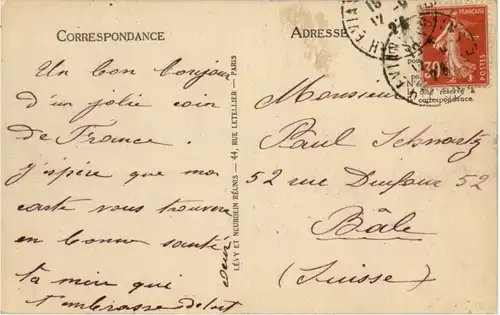 CORRESPONDANCE
Un bon bonjour
d'un jolie coin
de France.
j'espère que ma
carte vous trouvera
en bonne santé
ta mère qui
t'embrasse de tout
cœur
LÉVY ET NEURDEIN RÉUNIS — 44, RUE LETELLIER — PARIS
ADRESSE
correspondance.
Monsieur
Paul Schwartz
52 rue Dufour 52
Bâle
(Suisse)